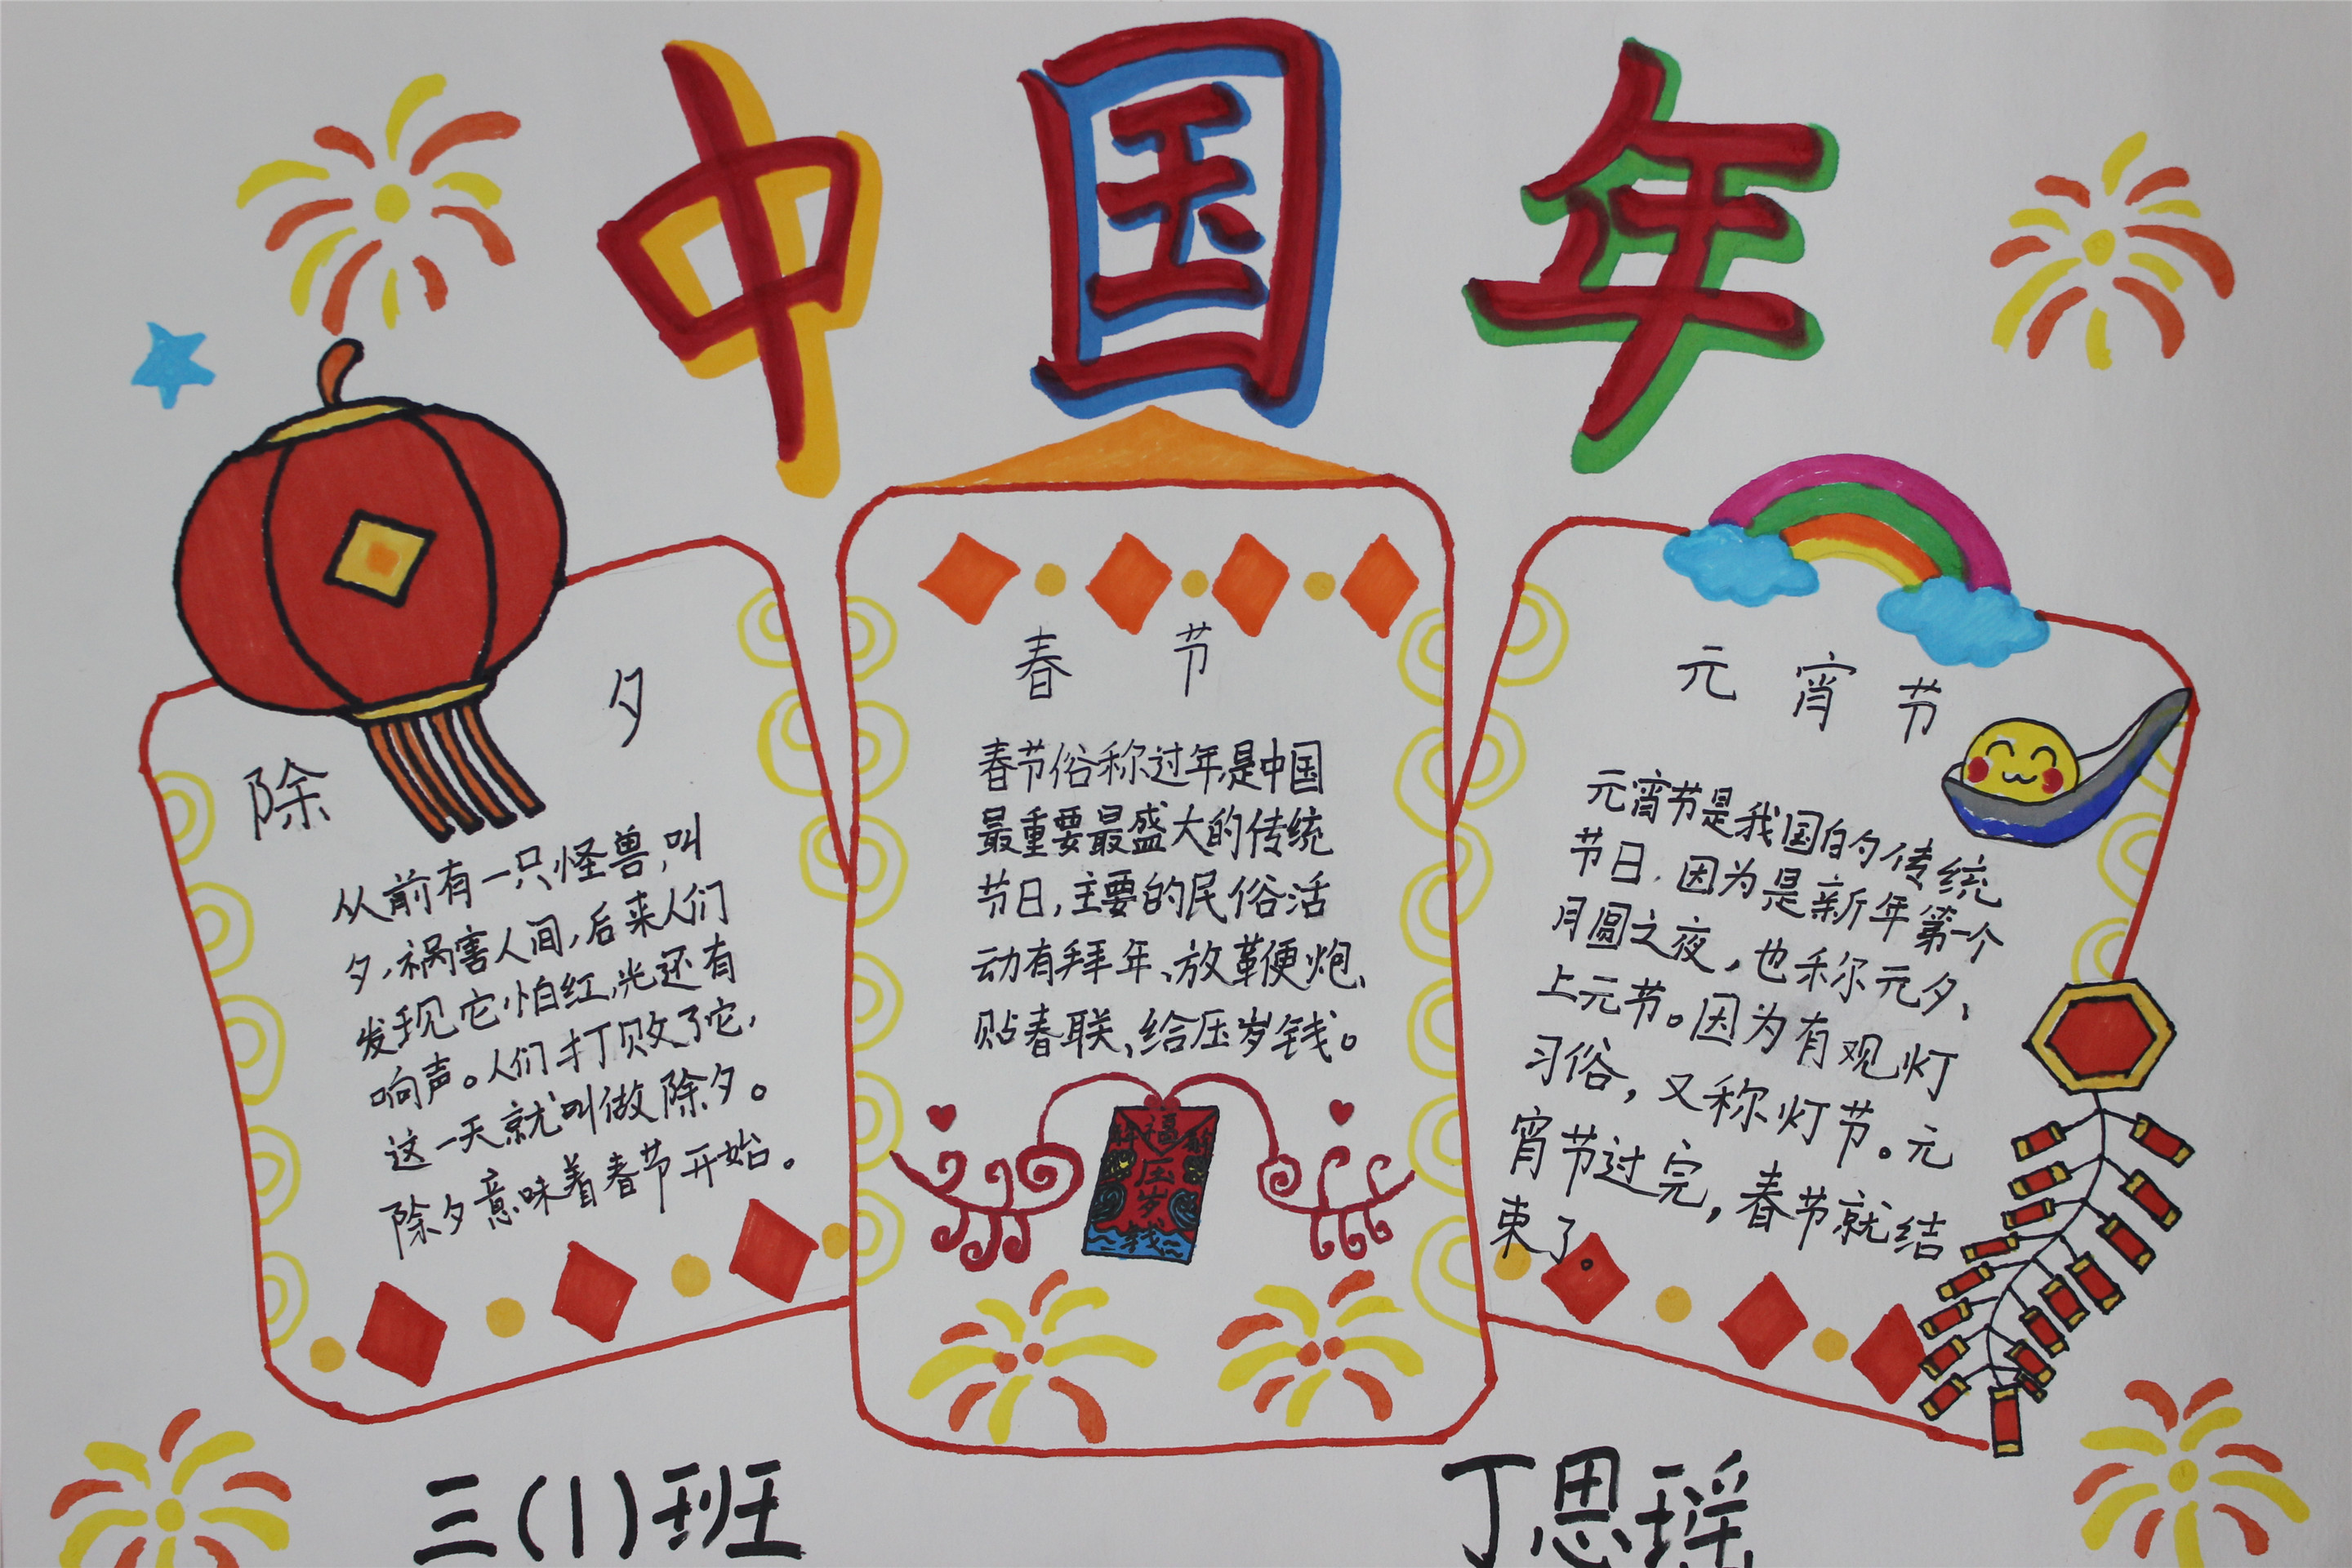 中国年
除夕
从前有一只怪兽,叫
夕,祸害人间,后来人们
发现它怕红,光还有
响声。人们打败了它,
这一天就叫做除夕。
除夕意味着春节开始。
春节
春节俗称过年,是中国
最重要最盛大的传统
节日,主要的民俗活
动有拜年、放鞭炮、
贴春联、给压岁钱。
福
压
岁
钱
元宵节
元宵节是我国的传统
节日.因为是新年第一个
月圆之夜,也称元夕、
上元节。因为有观灯
习俗,又称灯节。元
宵节过完,春节就结
束了。
三(1)班
丁思瑶